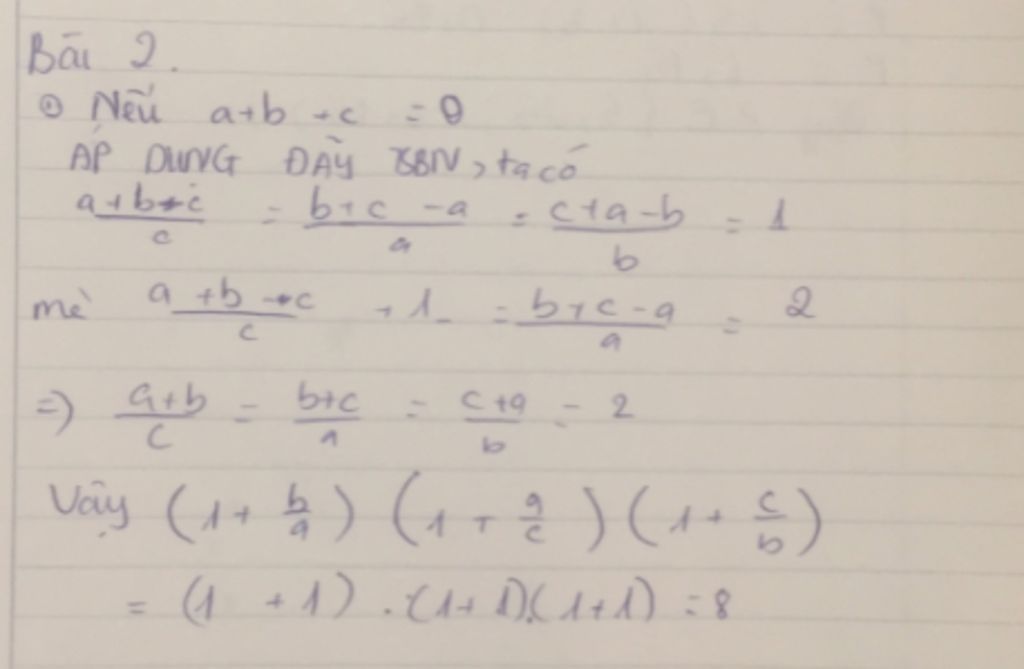 Bài 2.
⊙ Nếu a+b+c = 0
ÁP DUNG DÃY TSBN, ta có
\frac{a+b-c}{c} = \frac{b+c-a}{a} = \frac{c+a-b}{b} = 1
mà \frac{a+b-c}{c} + 1 = \frac{b+c-a}{a} = 2
=> \frac{a+b}{c} = \frac{b+c}{a} = \frac{c+a}{b} = 2
Vậy (1+\frac{b}{a}) (1+\frac{a}{c}) (1+\frac{c}{b})
= (1+1).(1+1)(1+1) = 8